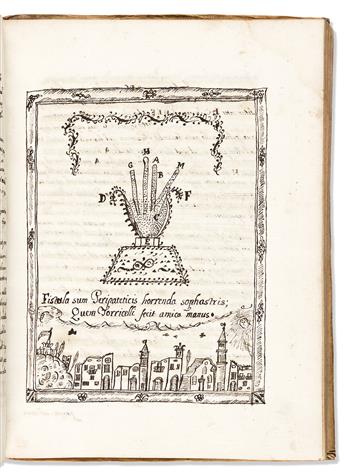 H
G A M
B
D F
C
E
Fistula sum Peripateticis horrenda sophastris;
Quem Torricelli fecit amica manus.